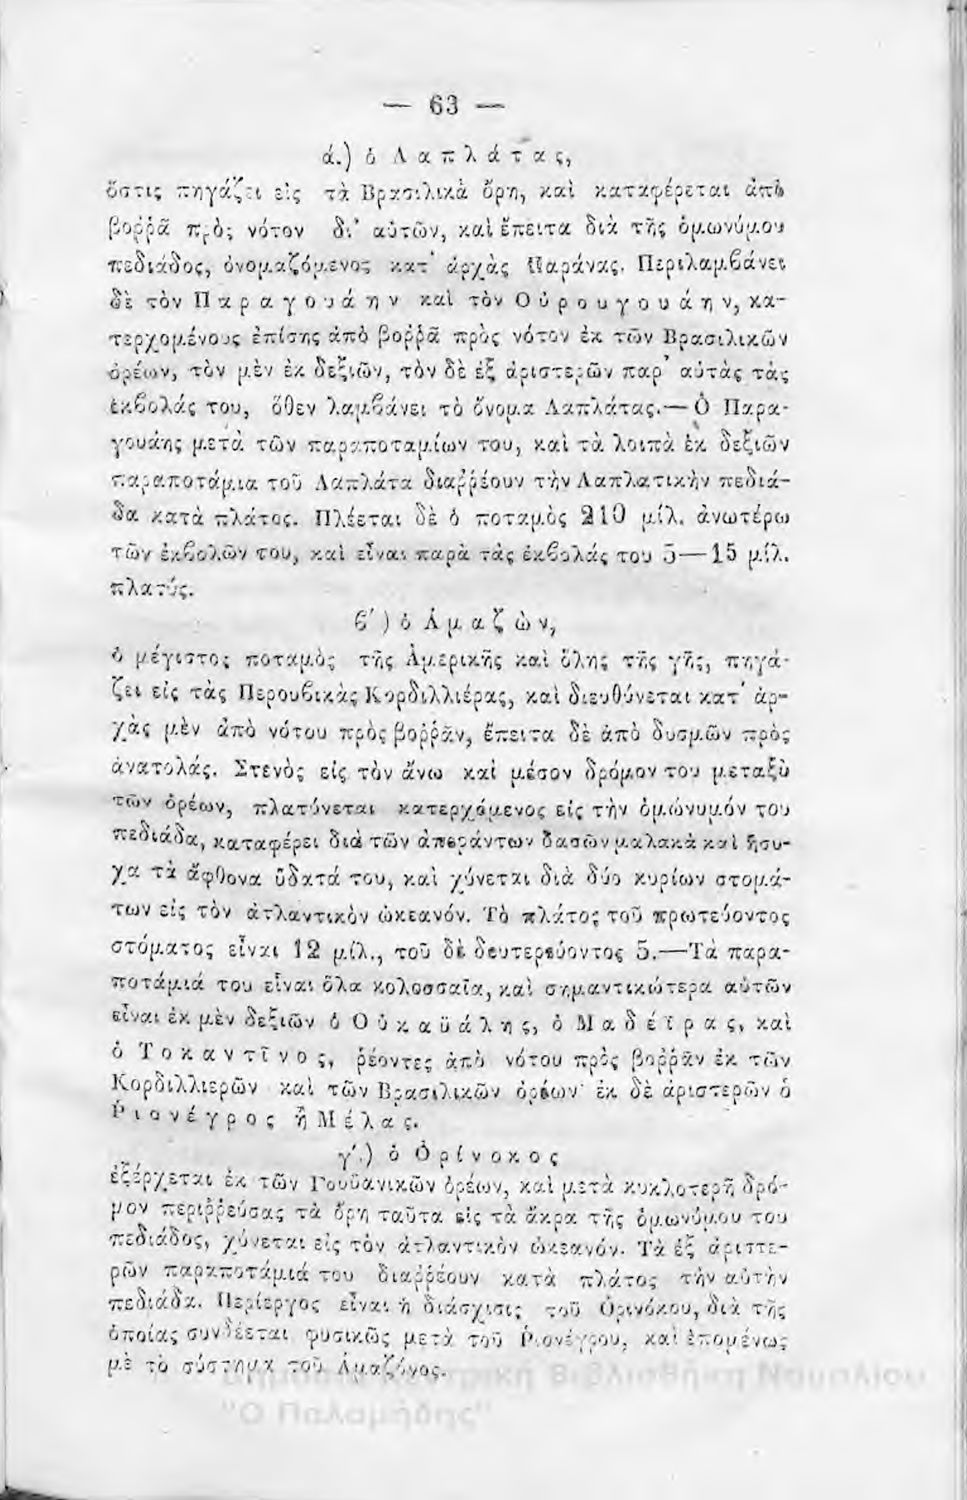 — 63 —
ά.) ὁ Λαπλάτας,
ὅστις πηγάζει εἰς τὰ Βρασιλικὰ ὄρη, καὶ καταφέρεται ἀπὸ
βοῤῥᾶ πρὸς νότον δι' αὐτῶν, καὶ ἔπειτα διὰ τῆς ὁμωνύμου
πεδιάδος, ὀνομαζόμενος κατ' ἀρχὰς Παράνας. Περιλαμβάνει
δὲ τὸν Παραγουάην καὶ τὸν Οὐρουγουάην, κα-
τερχομένους ἐπίσης ἀπὸ βοῤῥᾶ πρὸς νότον ἐκ τῶν Βρασιλικῶν
ὀρέων, τὸν μὲν ἐκ δεξιῶν, τὸν δὲ ἐξ ἀριστερῶν παρ' αὐτὰς τὰς
ἐκβολάς του, ὅθεν λαμβάνει τὸ ὄνομα Λαπλάτας.— Ὁ Παρα-
γουάης μετὰ τῶν παραποταμίων του, καὶ τὰ λοιπὰ ἐκ δεξιῶν
παραποτάμια τοῦ Λαπλάτα διαῤῥέουν τὴν Λαπλατικὴν πεδιά-
δα κατὰ πλάτος. Πλέεται δὲ ὁ ποταμὸς 210 μίλ. ἀνωτέρω
τῶν ἐκβολῶν του, καὶ εἶναι παρὰ τὰς ἐκβολάς του 5—15 μίλ.
πλατύς.
β') ὁ Ἀμαζὼν,
ὁ μέγιστος ποταμὸς τῆς Ἀμερικῆς καὶ ὅλης τῆς γῆς, πηγά-
ζει εἰς τὰς Περουβικὰς Κορδιλλιέρας, καὶ διευθύνεται κατ' ἀρ-
χὰς μὲν ἀπὸ νότου πρὸς βοῤῥᾶν, ἔπειτα δὲ ἀπὸ δυσμῶν πρὸς
ἀνατολάς. Στενὸς εἰς τὸν ἄνω καὶ μέσον δρόμον του μεταξὺ
τῶν ὀρέων, πλατύνεται κατερχόμενος εἰς τὴν ὁμώνυμόν του
πεδιάδα, καταφέρει διὰ τῶν ἀπεράντων δασῶν μαλακὰ καὶ ἥσυ-
χα τὰ ἄφθονα ὕδατά του, καὶ χύνεται διὰ δύο κυρίων στομά-
των εἰς τὸν ἀτλαντικὸν ὠκεανόν. Τὸ πλάτος τοῦ πρωτεύοντος
στόματος εἶναι 12 μίλ., τοῦ δὲ δευτερεύοντος 5.—Τὰ παρα-
ποτάμιά του εἶναι ὅλα κολοσσαῖα, καὶ σημαντικώτερα αὐτῶν
εἶναι ἐκ μὲν δεξιῶν ὁ Οὐκαϋάλης, ὁ Μαδέϊρας, καὶ
ὁ Τοκαντῖνος, ῥέοντες ἀπὸ νότου πρὸς βοῤῥᾶν ἐκ τῶν
Κορδιλλιερῶν καὶ τῶν Βρασιλικῶν ὀρέων· ἐκ δὲ ἀριστερῶν ὁ
Ῥιονέγρος ἢ Μέλας.
γ'.) ὁ Ὀρίνοκος
ἐξέρχεται ἐκ τῶν Γουϋανικῶν ὀρέων, καὶ μετὰ κυκλοτερῆ δρό-
μον περιῤῥεύσας τὰ ὄρη ταῦτα εἰς τὰ ἄκρα τῆς ὁμωνύμου του
πεδιάδος, χύνεται εἰς τὸν ἀτλαντικὸν ὠκεανόν. Τὰ ἐξ ἀριστε-
ρῶν παραποτάμιά του διαῤῥέουν κατὰ πλάτος τὴν αὐτὴν
πεδιάδα. Περίεργος εἶναι ἡ διάσχισις τοῦ Ὀρινόκου, διὰ τῆς
ὁποίας συνδέεται φυσικῶς μετὰ τοῦ Ῥιονέγρου, καὶ ἑπομένως
μὲ τὸ σύστημα τοῦ Ἀμαζόνος.
Δημόσια Κεντρική Βιβλιοθήκη Ναυπλίου
"Ο Παλαμήδης"